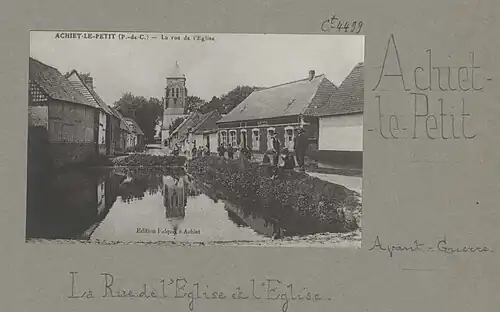 Ct-4499
ACHIET-LE-PETIT (P.-de-C.) — La rue de l'Eglise
Achiet-
-le-Petit
Edition à Achiet
Avant-Guerre.
La Rue de l'Eglise et l'Eglise.